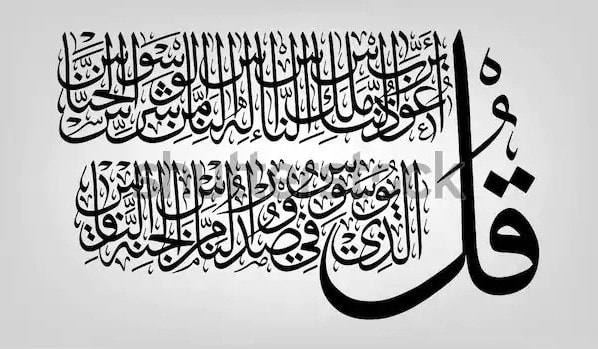 قُلْ أَعُوذُ بِرَبِّ النَّاسِ مَلِكِ النَّاسِ إِلَهِ النَّاسِ مِنْ شَرِّ الْوَسْوَاسِ الْخَنَّاسِ
الَّذِي يُوَسْوِسُ فِي صُدُورِ النَّاسِ مِنَ الْجِنَّةِ وَالنَّاسِ
shutterstock